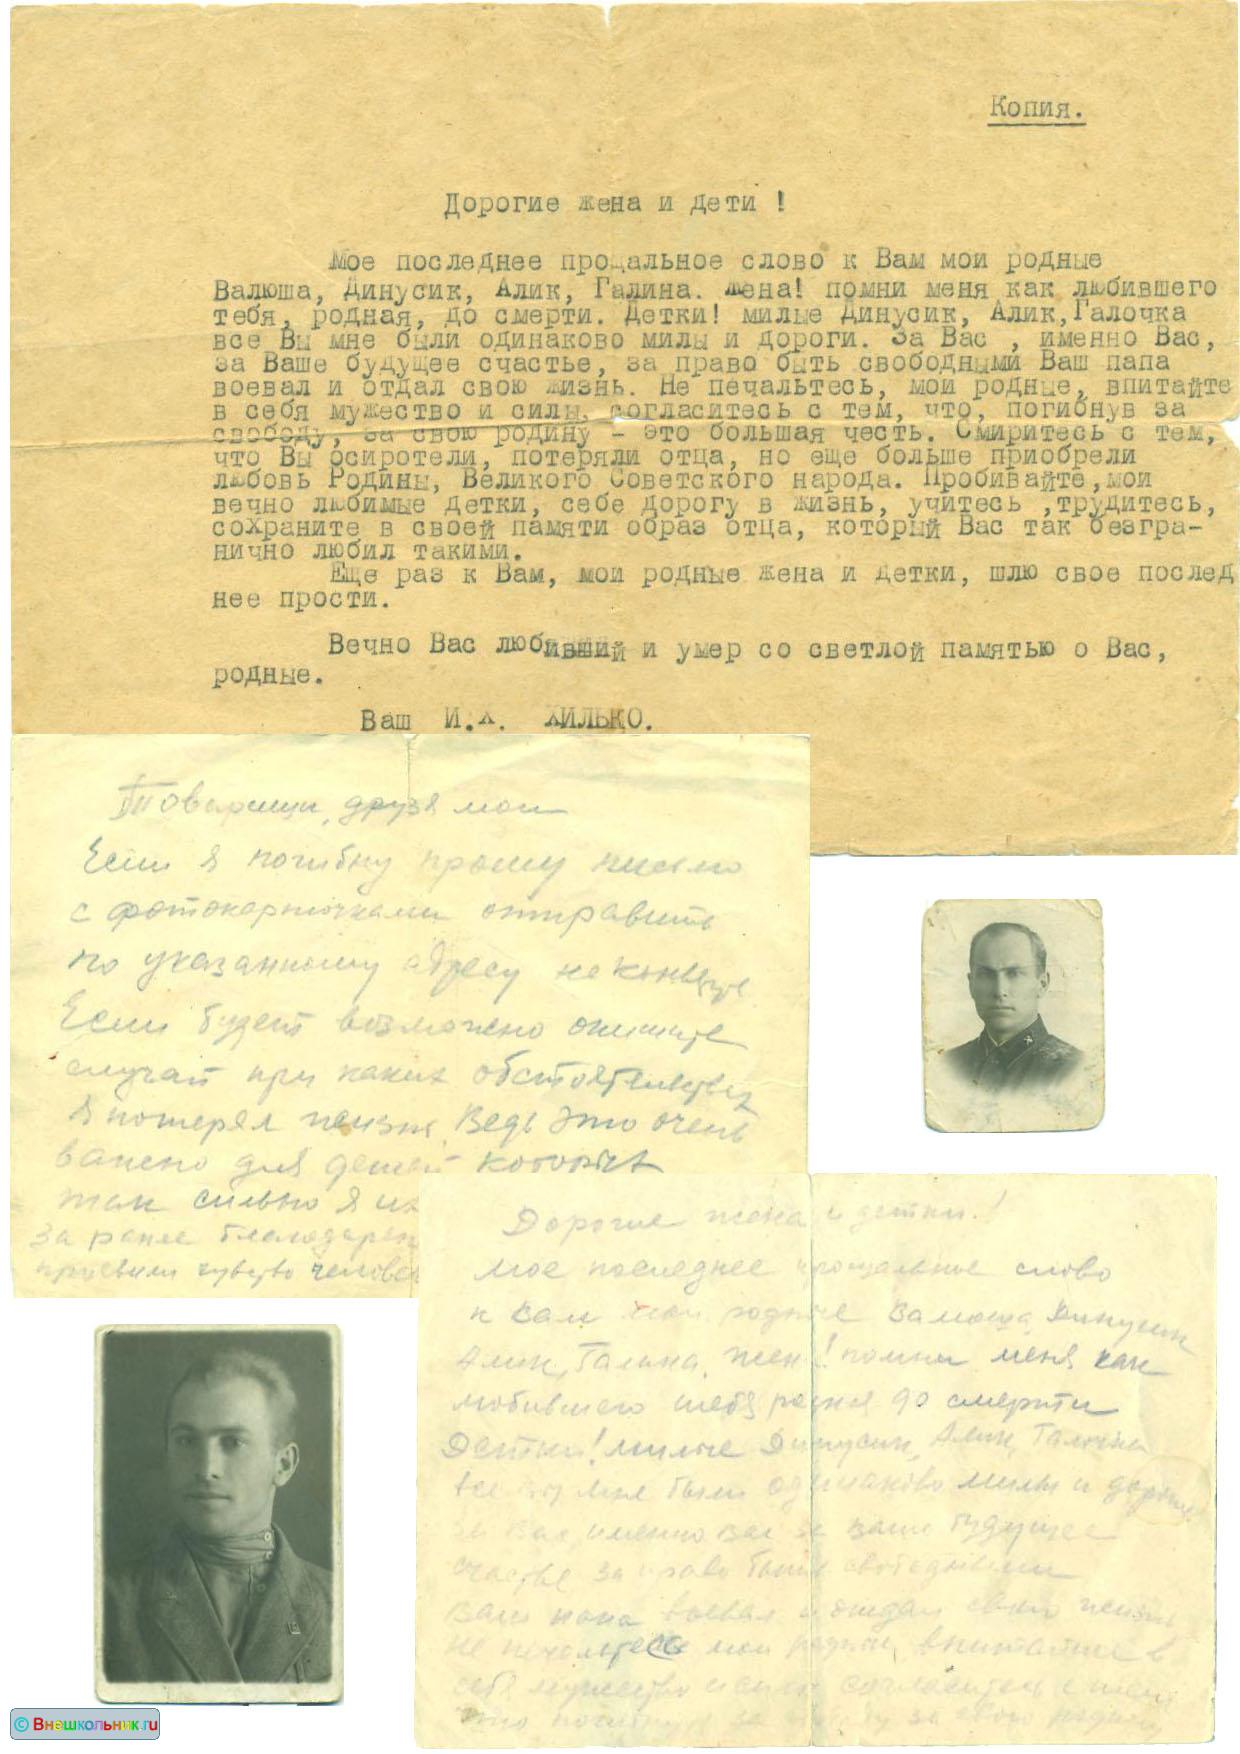 Копия.
Дорогие жена и дети !
Мое последнее прощальное слово к Вам мои родные
Валюша, Динусик, Алик, Галина. Жена! помни меня как любившего
тебя, родная, до смерти. Детки! милые Динусик, Алик,Галочка
все Вы мне были одинаково милы и дороги. За Вас , именно Вас,
за Ваше будущее счастье, за право быть свободными Ваш папа
воевал и отдал свою жизнь. Не печальтесь, мои родные, впитайте
в себя мужество и силы, согласитесь с тем, что, погибнув за
свободу, за свою родину - это большая честь. Смиритесь с тем,
что Вы осиротели, потеряли отца, но еще больше приобрели
любовь Родины, Великого Советского народа. Пробивайте,мои
вечно любимые детки, себе дорогу в жизнь, учитесь ,трудитесь,
сохраните в своей памяти образ отца, который Вас так безгра-
нично любил такими.
Еще раз к Вам, мои родные жена и детки, шлю свое послед
нее прости.
Вечно Вас любивший и умер со светлой памятью о Вас,
родные.
Ваш И.Х. ХИЛЬКО.
Товарищи, друзья мои
Если я погибну прошу письмо
с фотокарточками отправить
по указанному адресу на конверте
Если будет возможно опишите
случай при каких обстоятельствах
я потерял жизнь. Ведь это очень
важно для детей которых
так сильно я их
за ранее благодарен
проявили чувство человеч
Дорогие жена и детки!
Мое последнее прощальное слово
к Вам мои родные Валюша Динусик
Алик, Галина. Жена! помни меня как
любившего тебя родная до смерти
Детки! милые Динусик, Алик, Галочка
все вы мне были одинаково милы и дороги
за Вас, именно вас за ваше будущее
счастье за право быть свободными
Ваш папа воевал и отдал свою жизнь
не печальтесь мои родные, впитайте в
себя мужество и силы согласитесь с тем
что погибнув за свободу за свою родину
© Внешкольник.ru